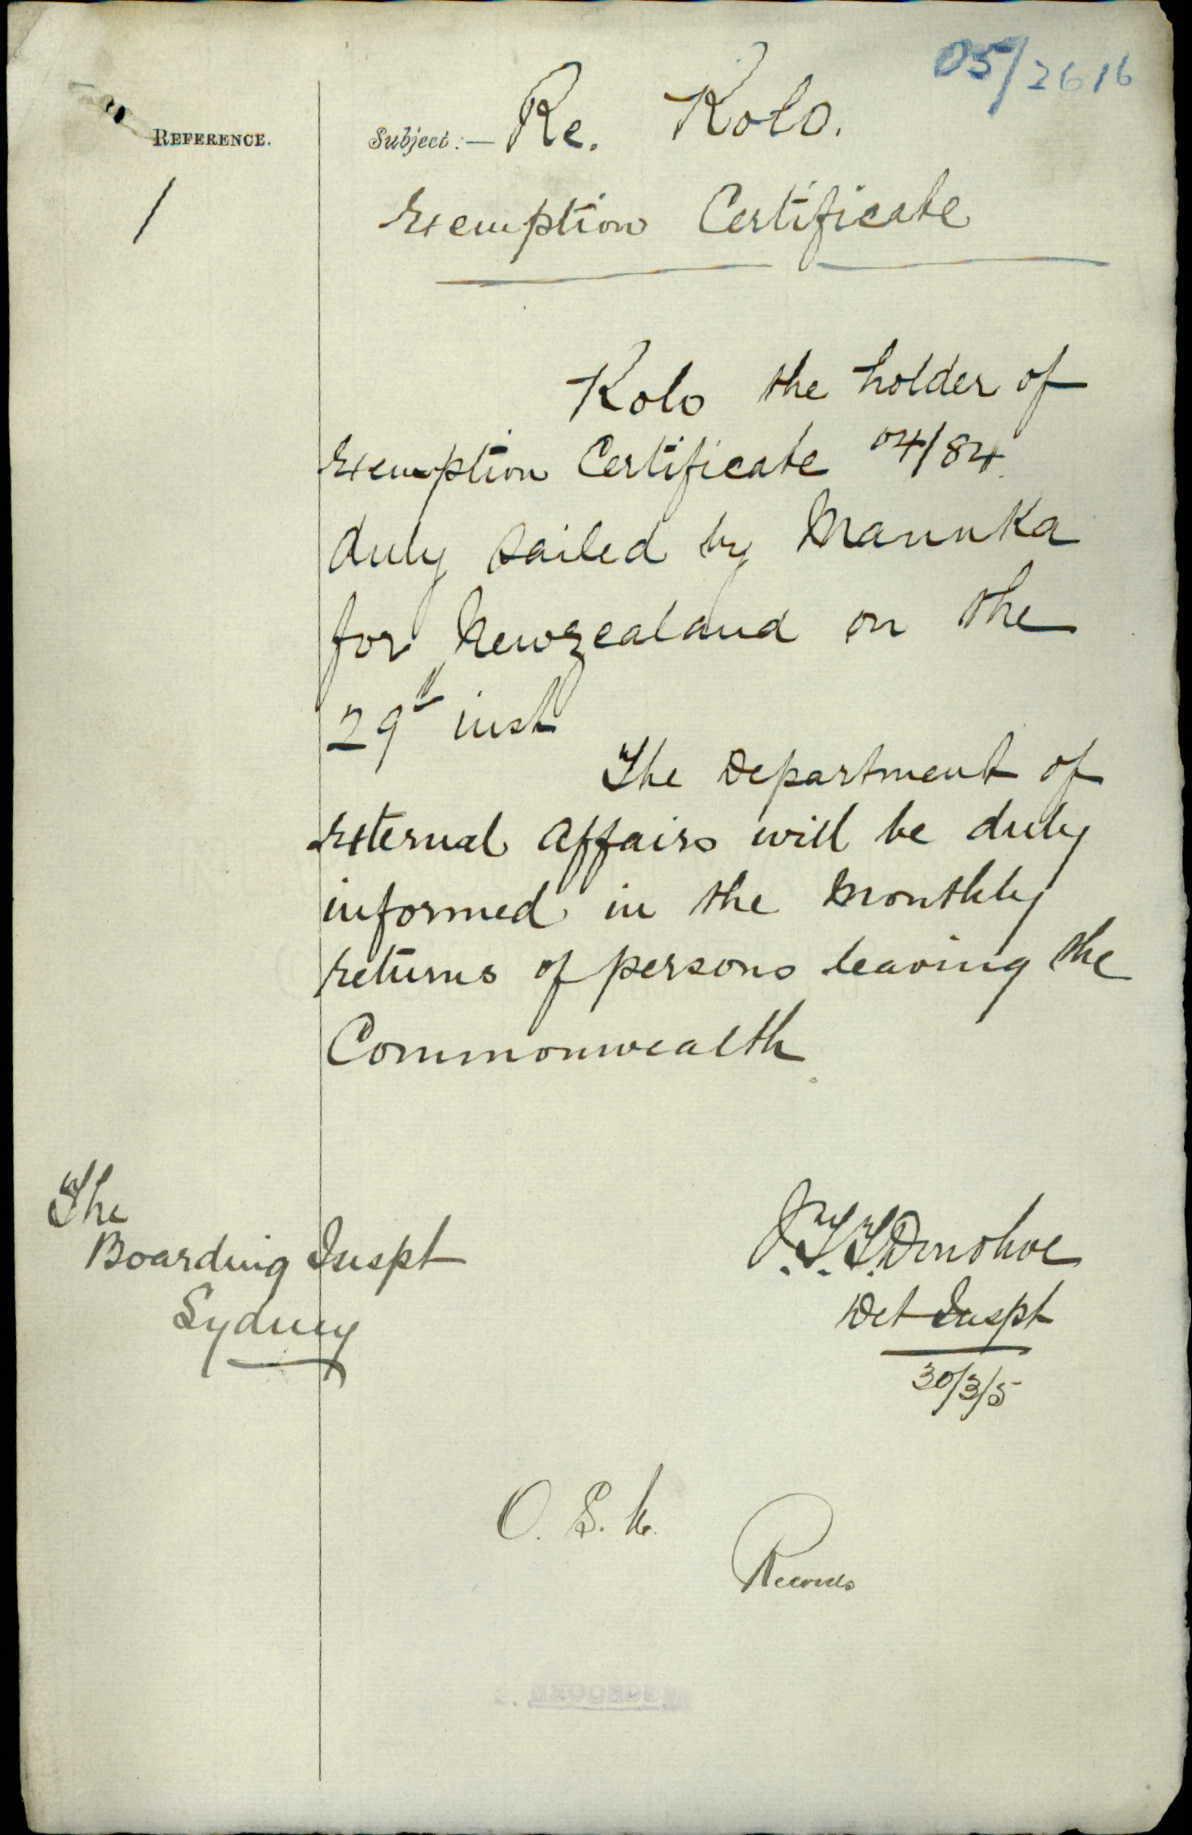 05/2616
REFERENCE.
Subject:— Re. Kolo.
1
Exemption Certificate
Kolo the holder of
Exemption Certificate 04/84
duly sailed by Manuka
for Newzealand on the
29th inst
The Department of
External Affairs will be duly
informed in the Monthly
returns of persons leaving the
Commonwealth
The
Boarding Inspt
Sydney
J.T.T. Donohoe
Det Inspt
30/3/5
Records